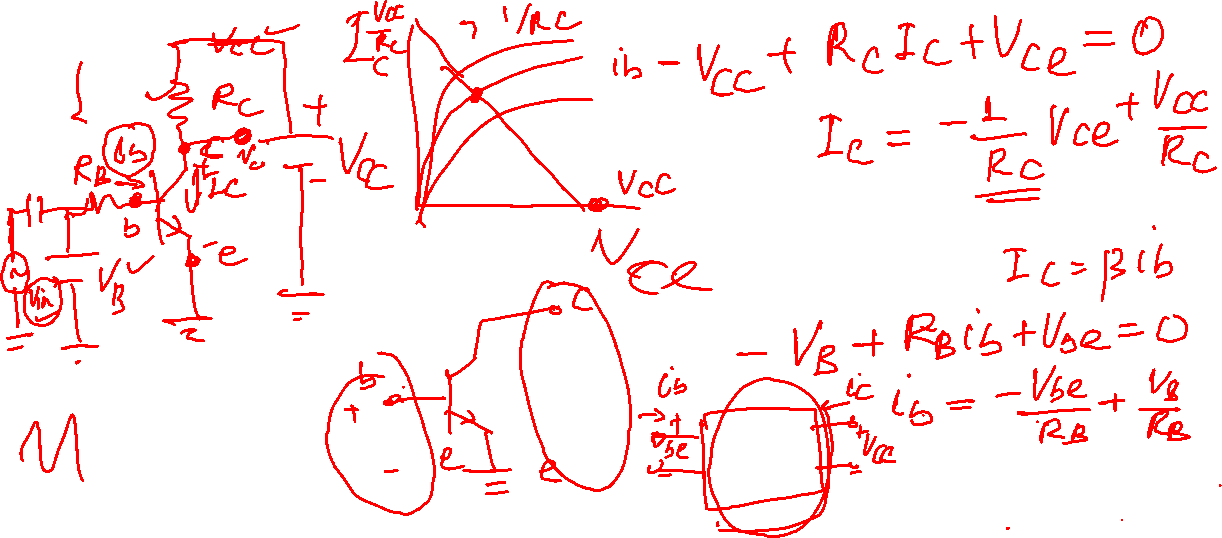 Vcc
Rc
+
Vcc
-
ib
RB
b
Ic
e
Vin
VB
Ic
Vcc/Rc
1/Rc
ib
Vcc
Vce
-Vcc + RcIc + Vce = 0
Ic = -1/Rc Vce + Vcc/Rc
Ic = βib
-VB + RBib + Vbe = 0
ib = -Vbe/RB + VB/RB
b
+
-
i
e
c
e
ib
+
Vbe
-
ic
+
Vcc